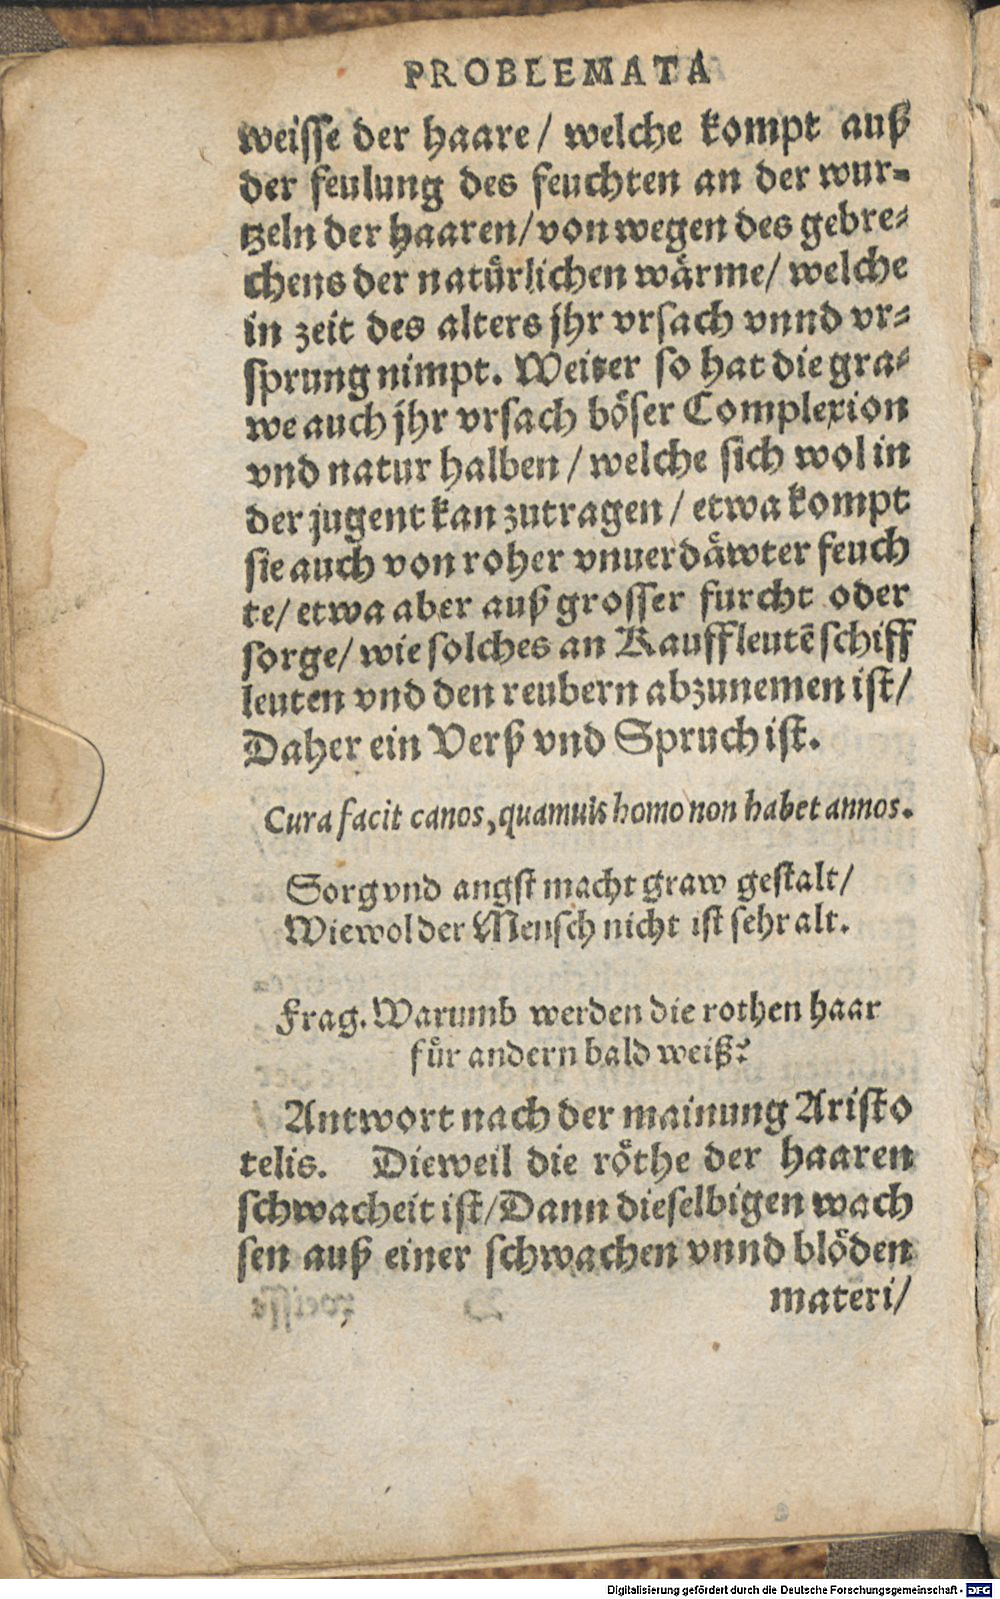 PROBLEMATA
weisse der haare / welche kompt auß
der feulung des feuchten an der wur⸗
tzeln der haaren / von wegen des gebre⸗
chens der natuͤrlichen waͤrme / welche
in zeit des alters jhr vrsach vnnd vr⸗
sprung nimpt. Weiter so hat die gra⸗
we auch jhr vrsach boͤser Complexion
vnd natur halben / welche sich wol in
der jugent kan zutragen / etwa kompt
sie auch von roher vnuerdaͤwter feuch
te / etwa aber auß grosser furcht oder
sorge / wie solches an Kauffleutē schiff
leuten vnd den reubern abzunemen ist /
Daher ein Verß vnd Spruch ist.
Cura facit canos, quamuis homo non habet annos.
Sorg vnd angst macht graw gestalt /
Wiewol der Mensch nicht ist sehr alt.
Frag. Warumb werden die rothen haar
fuͤr andern bald weiß?
Antwort nach der mainung Aristo
telis. Dieweil die roͤthe der haaren
schwacheit ist / Dann dieselbigen wach
sen auß einer schwachen vnnd bloͤden
materi /
Digitalisierung gefördert durch die Deutsche Forschungsgemeinschaft - DFG